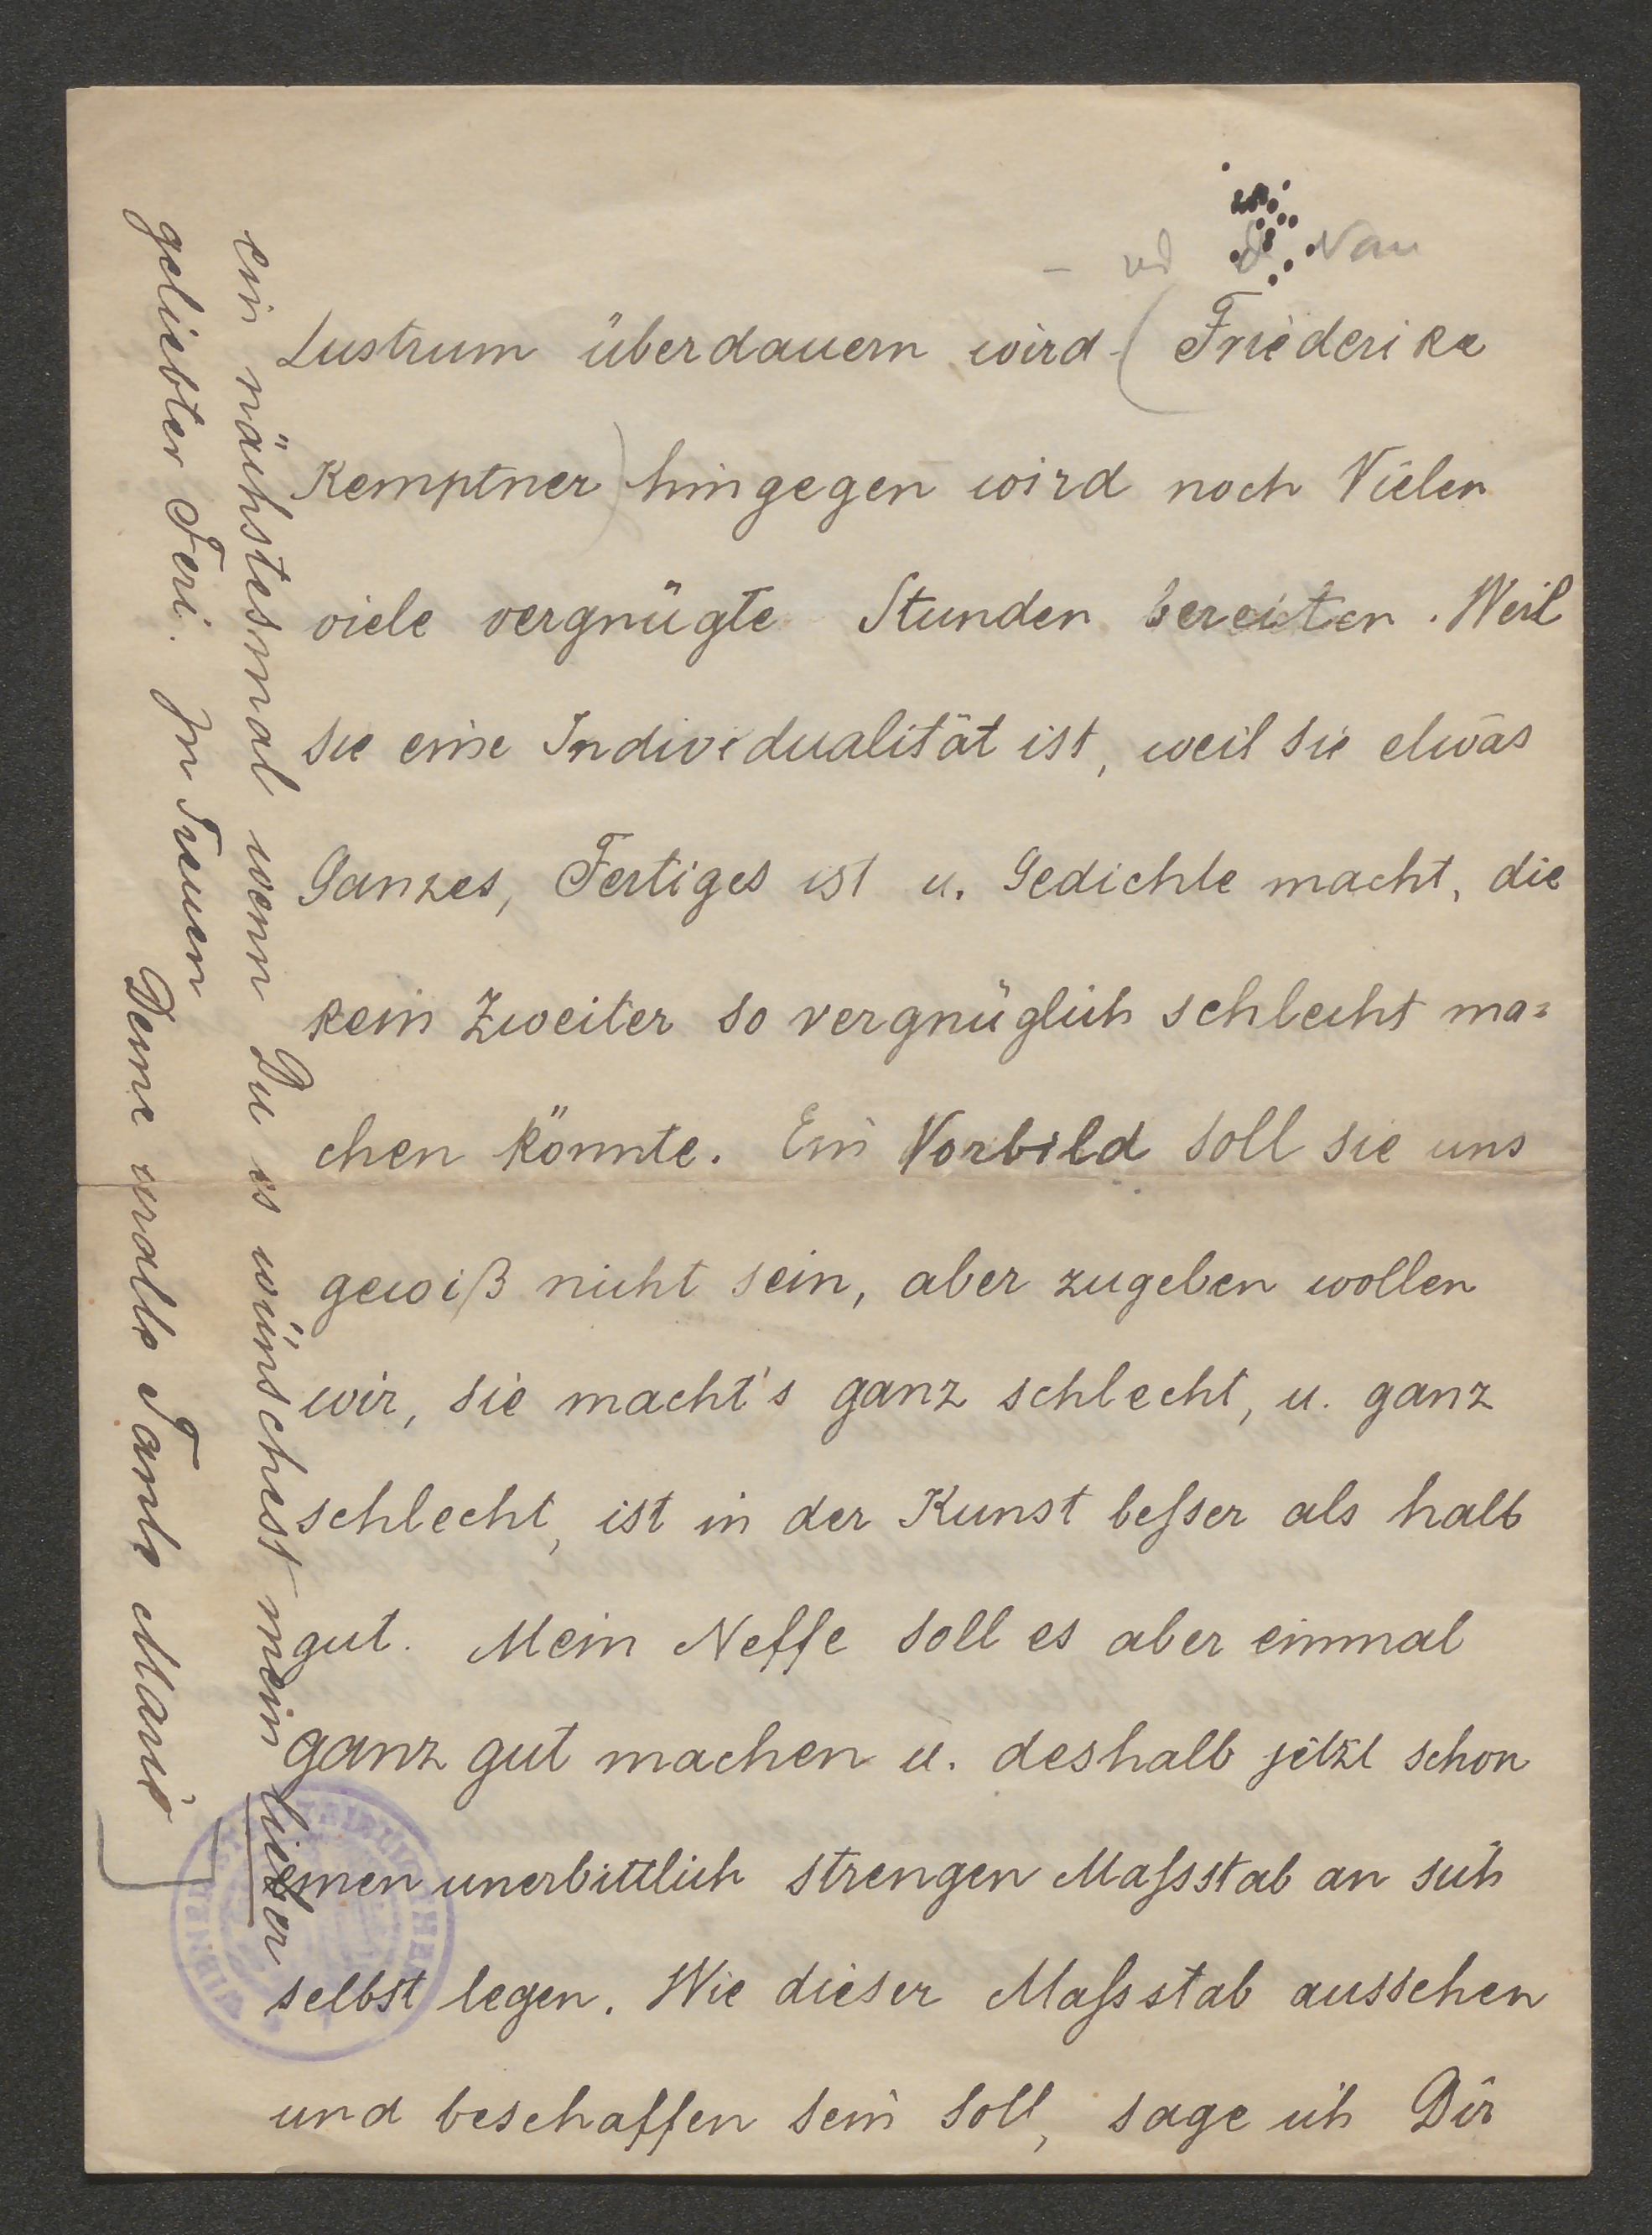 Lustrum überdauern wird (Friederike
Kemptner) hingegen wird noch Vielen
viele vergnügte Stunden bereiten. Weil
sie eine Individualität ist, weil sie etwas
Ganzes, Fertiges ist u. Gedichte macht, die
kein Zweiter so vergnüglich schlecht ma=
chen könnte. Ein Vorbild soll sie uns
gewiß nicht sein, aber zugeben wollen
wir, sie macht's ganz schlecht, u. ganz
schlecht, ist in der Kunst besser als halb
gut. Mein Neffe soll es aber einmal
ganz gut machen u. deshalb jetzt schon
einen unerbittlich strengen Massstab an sich
selbst legen. Wie dieser Massstab aussehen
und beschaffen sein soll, sage ich Dir
ein nächstesmal wenn Du es wünschest mein lieber
geliebter Feri. In Treuen
Deine uralte Tante Marie